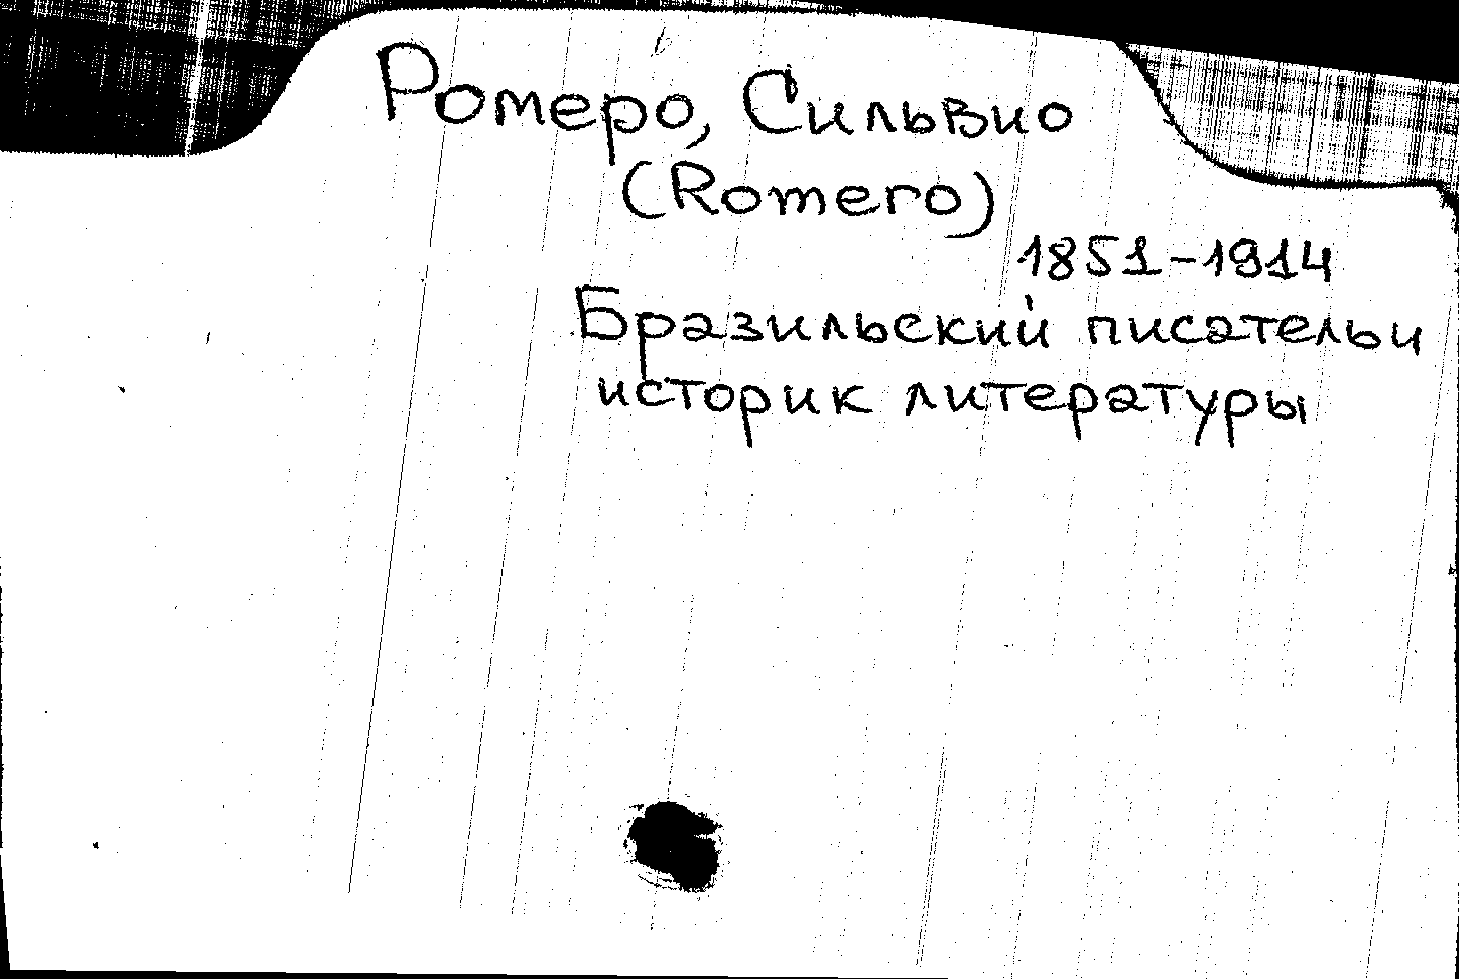 Ромеро, Сильвио
(Romero)
1851-1914
Бразильский писатель и
историк литературы